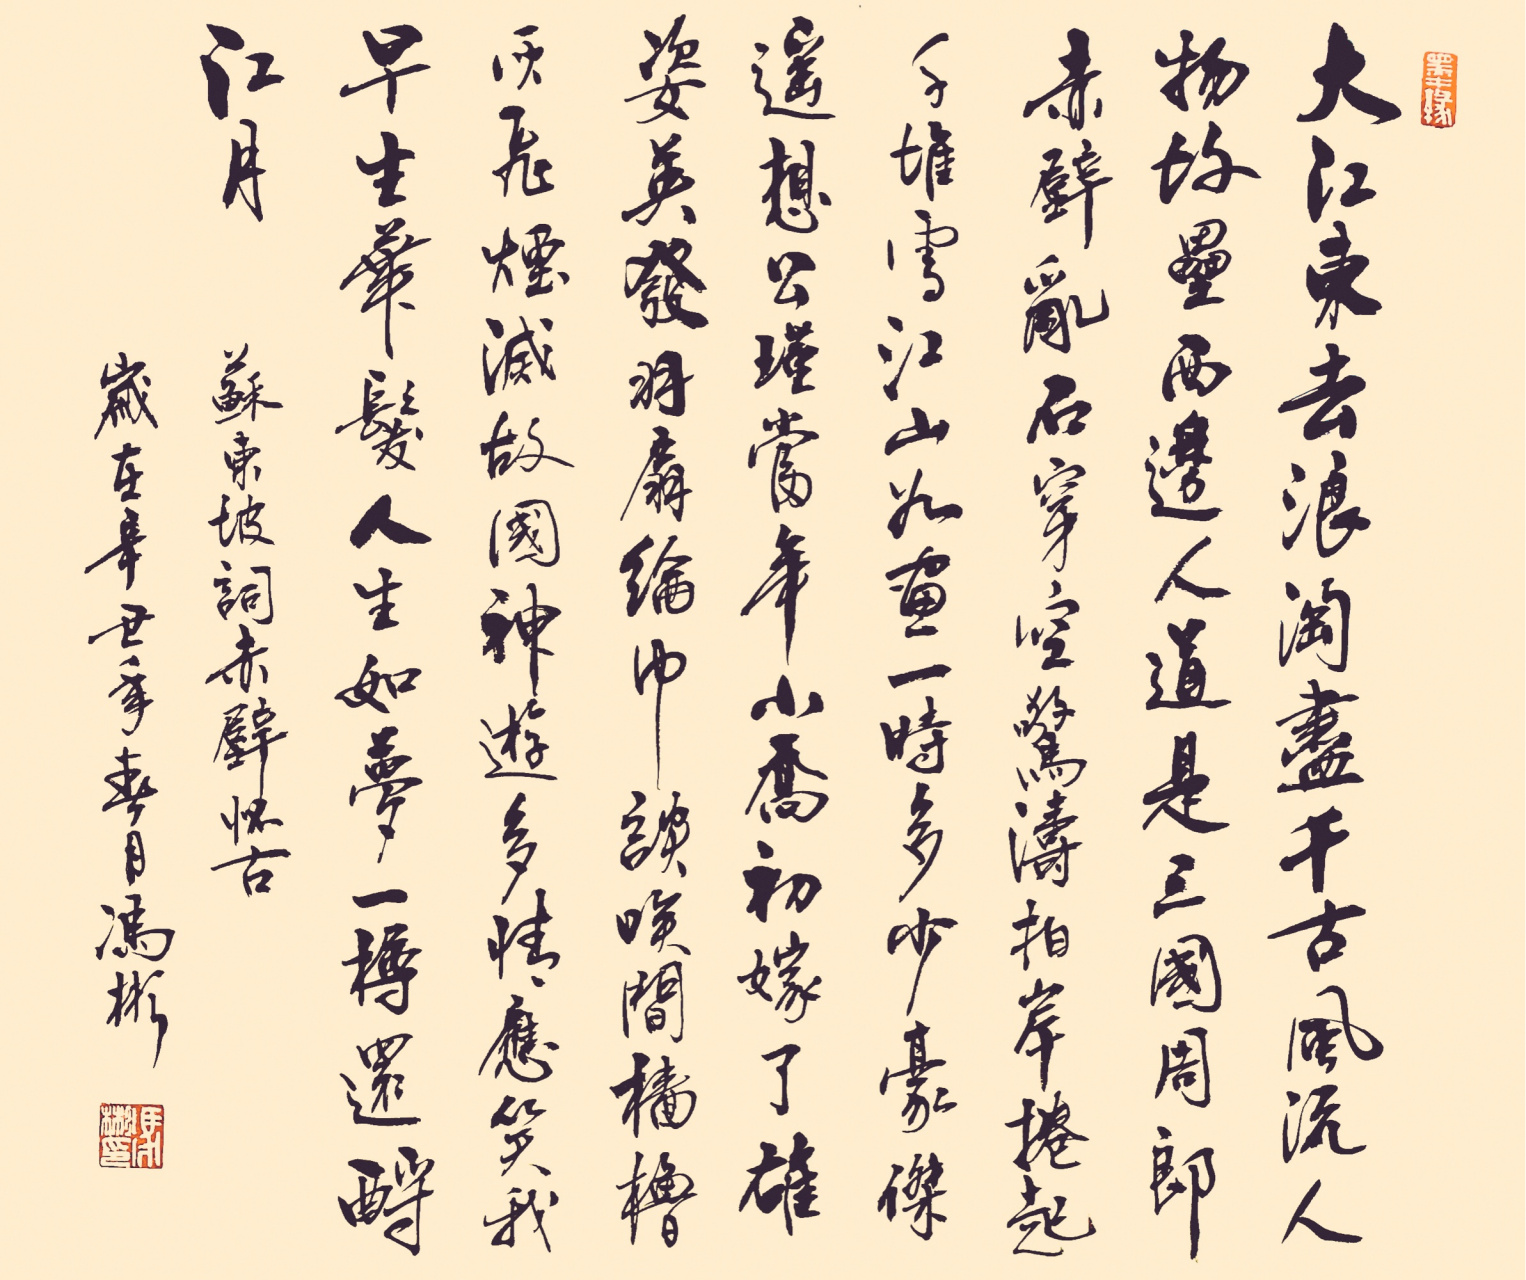 大江東去浪淘盡千古風流人
物故壘西邊人道是三國周郎
赤壁亂石穿空驚濤拍岸捲起
千堆雪江山如畫一時多少豪傑
遙想公瑾當年小喬初嫁了雄
姿英發羽扇綸巾談笑間檣櫓
灰飛煙滅故國神遊多情應笑我
早生華髮人生如夢一樽還酹
江月
蘇東坡詞赤壁懷古
歲在辛丑年春月馮彬